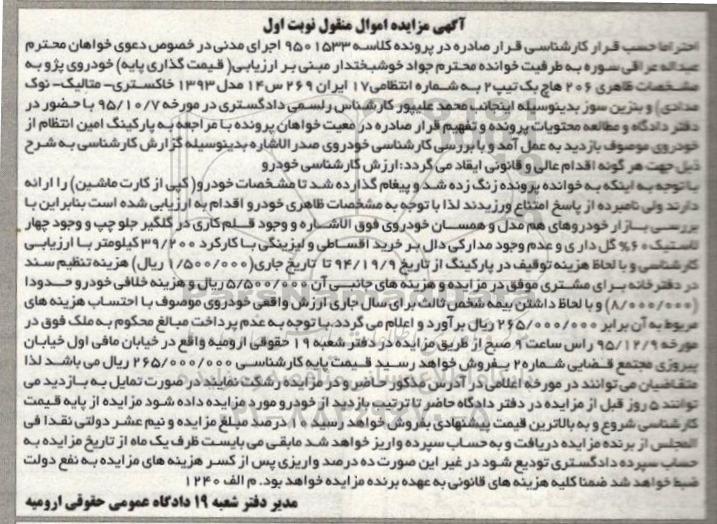 آگهی مزایده اموال منقول نوبت اول
احتراما حسب قرار کارشناسی قرار صادره در پرونده کلاسه ۹۵۰۱۵۳۳ اجرای مدنی در خصوص دعوی خواهان محترم
عبداله عراقی سوره به طرفیت خوانده محترم جواد خوشبختدار مبنی بر ارزیابی( قیمت گذاری پایه) خودروی پژو به
مشخصات ظاهری ۲۰۶ هاچ بک تیپ۲ به شماره انتظامی۱۷ ایران ۲۶۹ س۱۴ مدل ۱۳۹۳ خاکستری- متالیک- نوک
مدادی) و بنزین سوز بدینوسیله اینجانب محمد علیپور کارشناس رسمی دادگستری در مورخه ۹۵/۱۰/۷ با حضور در
دفتر دادگاه و مطالعه محتویات پرونده و تفهیم قرار صادره در معیت خواهان پرونده با مراجعه به پارکینگ امین انتظام از
خودروی موصوف بازدید به عمل آمد و با بررسی کارشناسی خودروی صدرالاشاره بدینوسیله گزارش کارشناسی به شرح
ذیل جهت هر گونه اقدام عالی و قانونی ایفاد می گردد:ارزش کارشناسی خودرو
با توجه به اینکه به خوانده پرونده زنگ زده شد و پیغام گذارده شد تا مشخصات خودرو( کپی از کارت ماشین) را ارائه
دارند ولی نامبرده از پاسخ امتناع ورزیدند لذا با توجه به مشخصات ظاهری خودرو اقدام به ارزیابی شده است بنابراین با
بررسی بازار خودروهای هم مدل و همسان خودروی فوق الاشاره و وجود قلم کاری در گلگیر جلو چپ و وجود چهار
لاستیک ۶۰% گل داری و عدم وجود مدارکی دال بر خرید اقساطی و لیزینگی با کارکرد ۳۹/۲۰۰ کیلومتر با ارزیابی
کارشناسی و با لحاظ هزینه توقیف در پارکینگ از تاریخ ۹۴/۱۹/۹ تا تاریخ جاری(۱/۵۰۰/۰۰۰ ریال) هزینه تنظیم سند
در دفترخانه برای مشتری موفق در مزایده و هزینه های جانبی آن ۵/۵۰۰/۰۰۰ ریال و هزینه خلافی خودرو حدودا
(۸/۰۰۰/۰۰۰) و با لحاظ داشتن بیمه شخص ثالث برای سال جاری ارزش واقعی خودروی موصوف با احتساب هزینه های
مربوط به آن برابر ۲۶۵/۰۰۰/۰۰۰ ریال برآورد و اعلام می گردد.با توجه به عدم پرداخت مبالغ محکوم به ملک فوق در
مورخه ۹۵/۱۲/۹ راس ساعت ۹ صبح از طریق مزایده در دفتر شعبه ۱۹ حقوقی ارومیه واقع در خیابان مافی اول خیابان
پیروزی مجتمع قضایی شماره۲ بفروش خواهد رسید قیمت پایه کارشناسی ۲۶۵/۰۰۰/۰۰۰ ریال می باشد لذا
متقاضیان می توانند در مورخه اعلامی در آدرس مذکور حاضر و در مزایده شرکت نمایند در صورت تمایل به بازدید می
توانند ۵ روز قبل از مزایده در دفتر دادگاه حاضر تا ترتیب بازدید از خودرو مورد مزایده داده شود مزایده از پایه قیمت
کارشناسی شروع و به بالاترین قیمت پیشنهادی بفروش خواهد رسید ۱۰ درصد مبلغ مزایده و نیم عشر دولتی نقدا فی
المجلس از برنده مزایده دریافت و به حساب سپرده واریز خواهد شد مابقی می بایست ظرف یک ماه از تاریخ مزایده به
حساب سپرده دادگستری تودیع شود در غیر این صورت ده درصد واریزی پس از کسر هزینه های مزایده به نفع دولت
ضبط خواهد شد ضمنا کلیه هزینه های قانونی به عهده برنده مزایده خواهد بود. م الف ۱۲۴۰
مدیر دفتر شعبه ۱۹ دادگاه عمومی حقوقی ارومیه